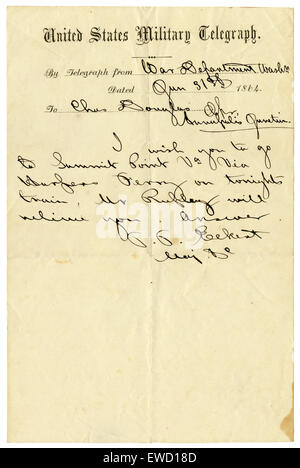 United States Military Telegraph.
By Telegraph from War Department Wash
Dated Jan 31st 1864.
To Chas Douglas Opr
Annapolis Junction
I wish you to go
to Summit Point Va Via
Harpers Ferry on tonights
train, Mr will
relieve you. Answer
T. T. Eckert
Maj &c
alamy
Image ID: EWD18D
www.alamy.com